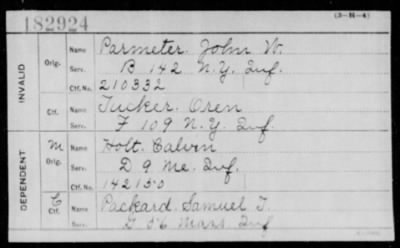 182924 (3-H-4)
INVALID Orig. Name Parmeter. John W.
Serv. B 142 N.Y. Inf.
Ctf. No. 210332
Ctf. Name Tucker. Oren
Serv. F 109 N.Y. Inf.
DEPENDENT M Orig. Name Holt. Calvin
Serv. D 9 Me. Inf.
Ctf. No. 142150
C Ctf. Name Packard. Samuel T.
Serv. 56 Mass. Inf